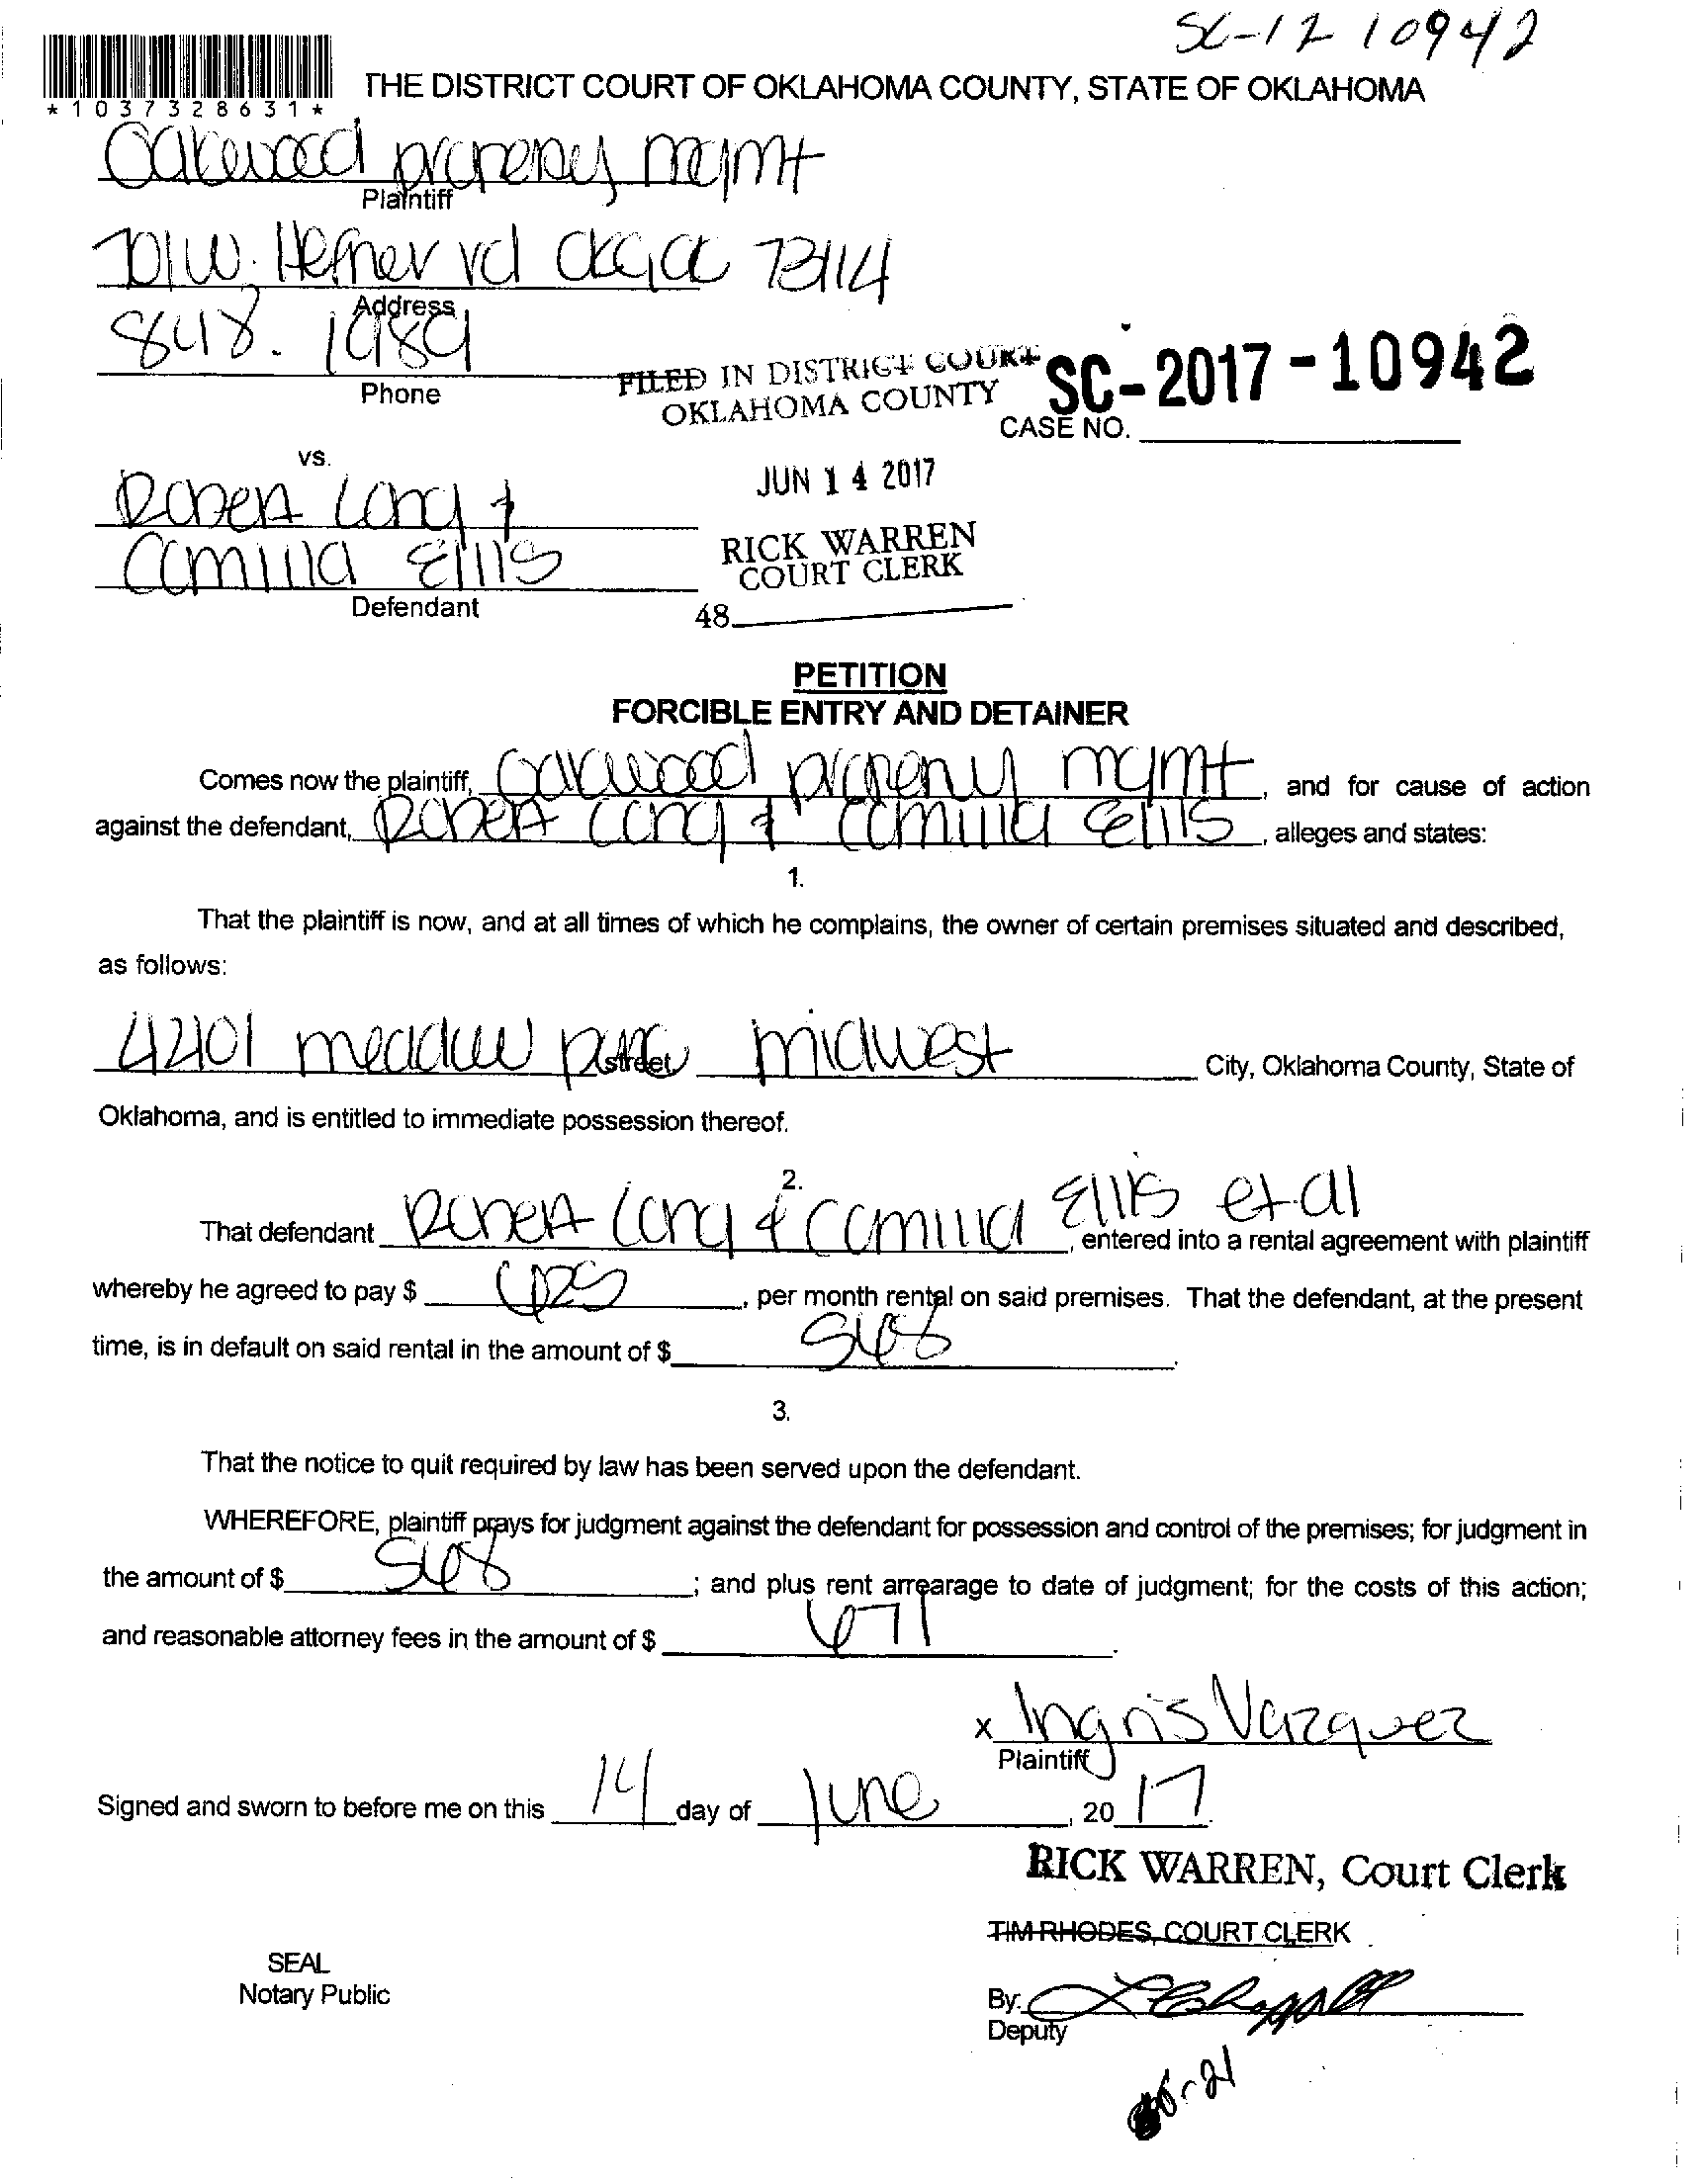 SC-17 10942
*1037328631*
THE DISTRICT COURT OF OKLAHOMA COUNTY, STATE OF OKLAHOMA
Oakwood property mgmt
Plaintiff
701 W. Hefner rd okc ok 73114
Address
848. 1989
Phone
FILED IN DISTRICT COURT
OKLAHOMA COUNTY
SC-2017-10942
CASE NO.
JUN 14 2017
RICK WARREN
COURT CLERK
48
vs.
Robert Long &
Camilla Ellis
Defendant
PETITION
FORCIBLE ENTRY AND DETAINER
Comes now the plaintiff, Oakwood property mgmt, and for cause of action
against the defendant, Robert Long & Camilla Ellis, alleges and states:
1.
That the plaintiff is now, and at all times of which he complains, the owner of certain premises situated and described,
as follows:
4401 meadow park street midwest City, Oklahoma County, State of
Oklahoma, and is entitled to immediate possession thereof.
2.
That defendant Robert Long & Camilla Ellis et al, entered into a rental agreement with plaintiff
whereby he agreed to pay $ 625, per month rental on said premises. That the defendant, at the present
time, is in default on said rental in the amount of $ 568.
3.
That the notice to quit required by law has been served upon the defendant.
WHEREFORE, plaintiff prays for judgment against the defendant for possession and control of the premises; for judgment in
the amount of $ 568; and plus rent arrearage to date of judgment; for the costs of this action;
and reasonable attorney fees in the amount of $ 671.
x Ingris Vazquez
Plaintiff
Signed and sworn to before me on this 14 day of June, 2017.
RICK WARREN, Court Clerk
TIM RHODES, COURT CLERK
SEAL
Notary Public
By:
Deputy